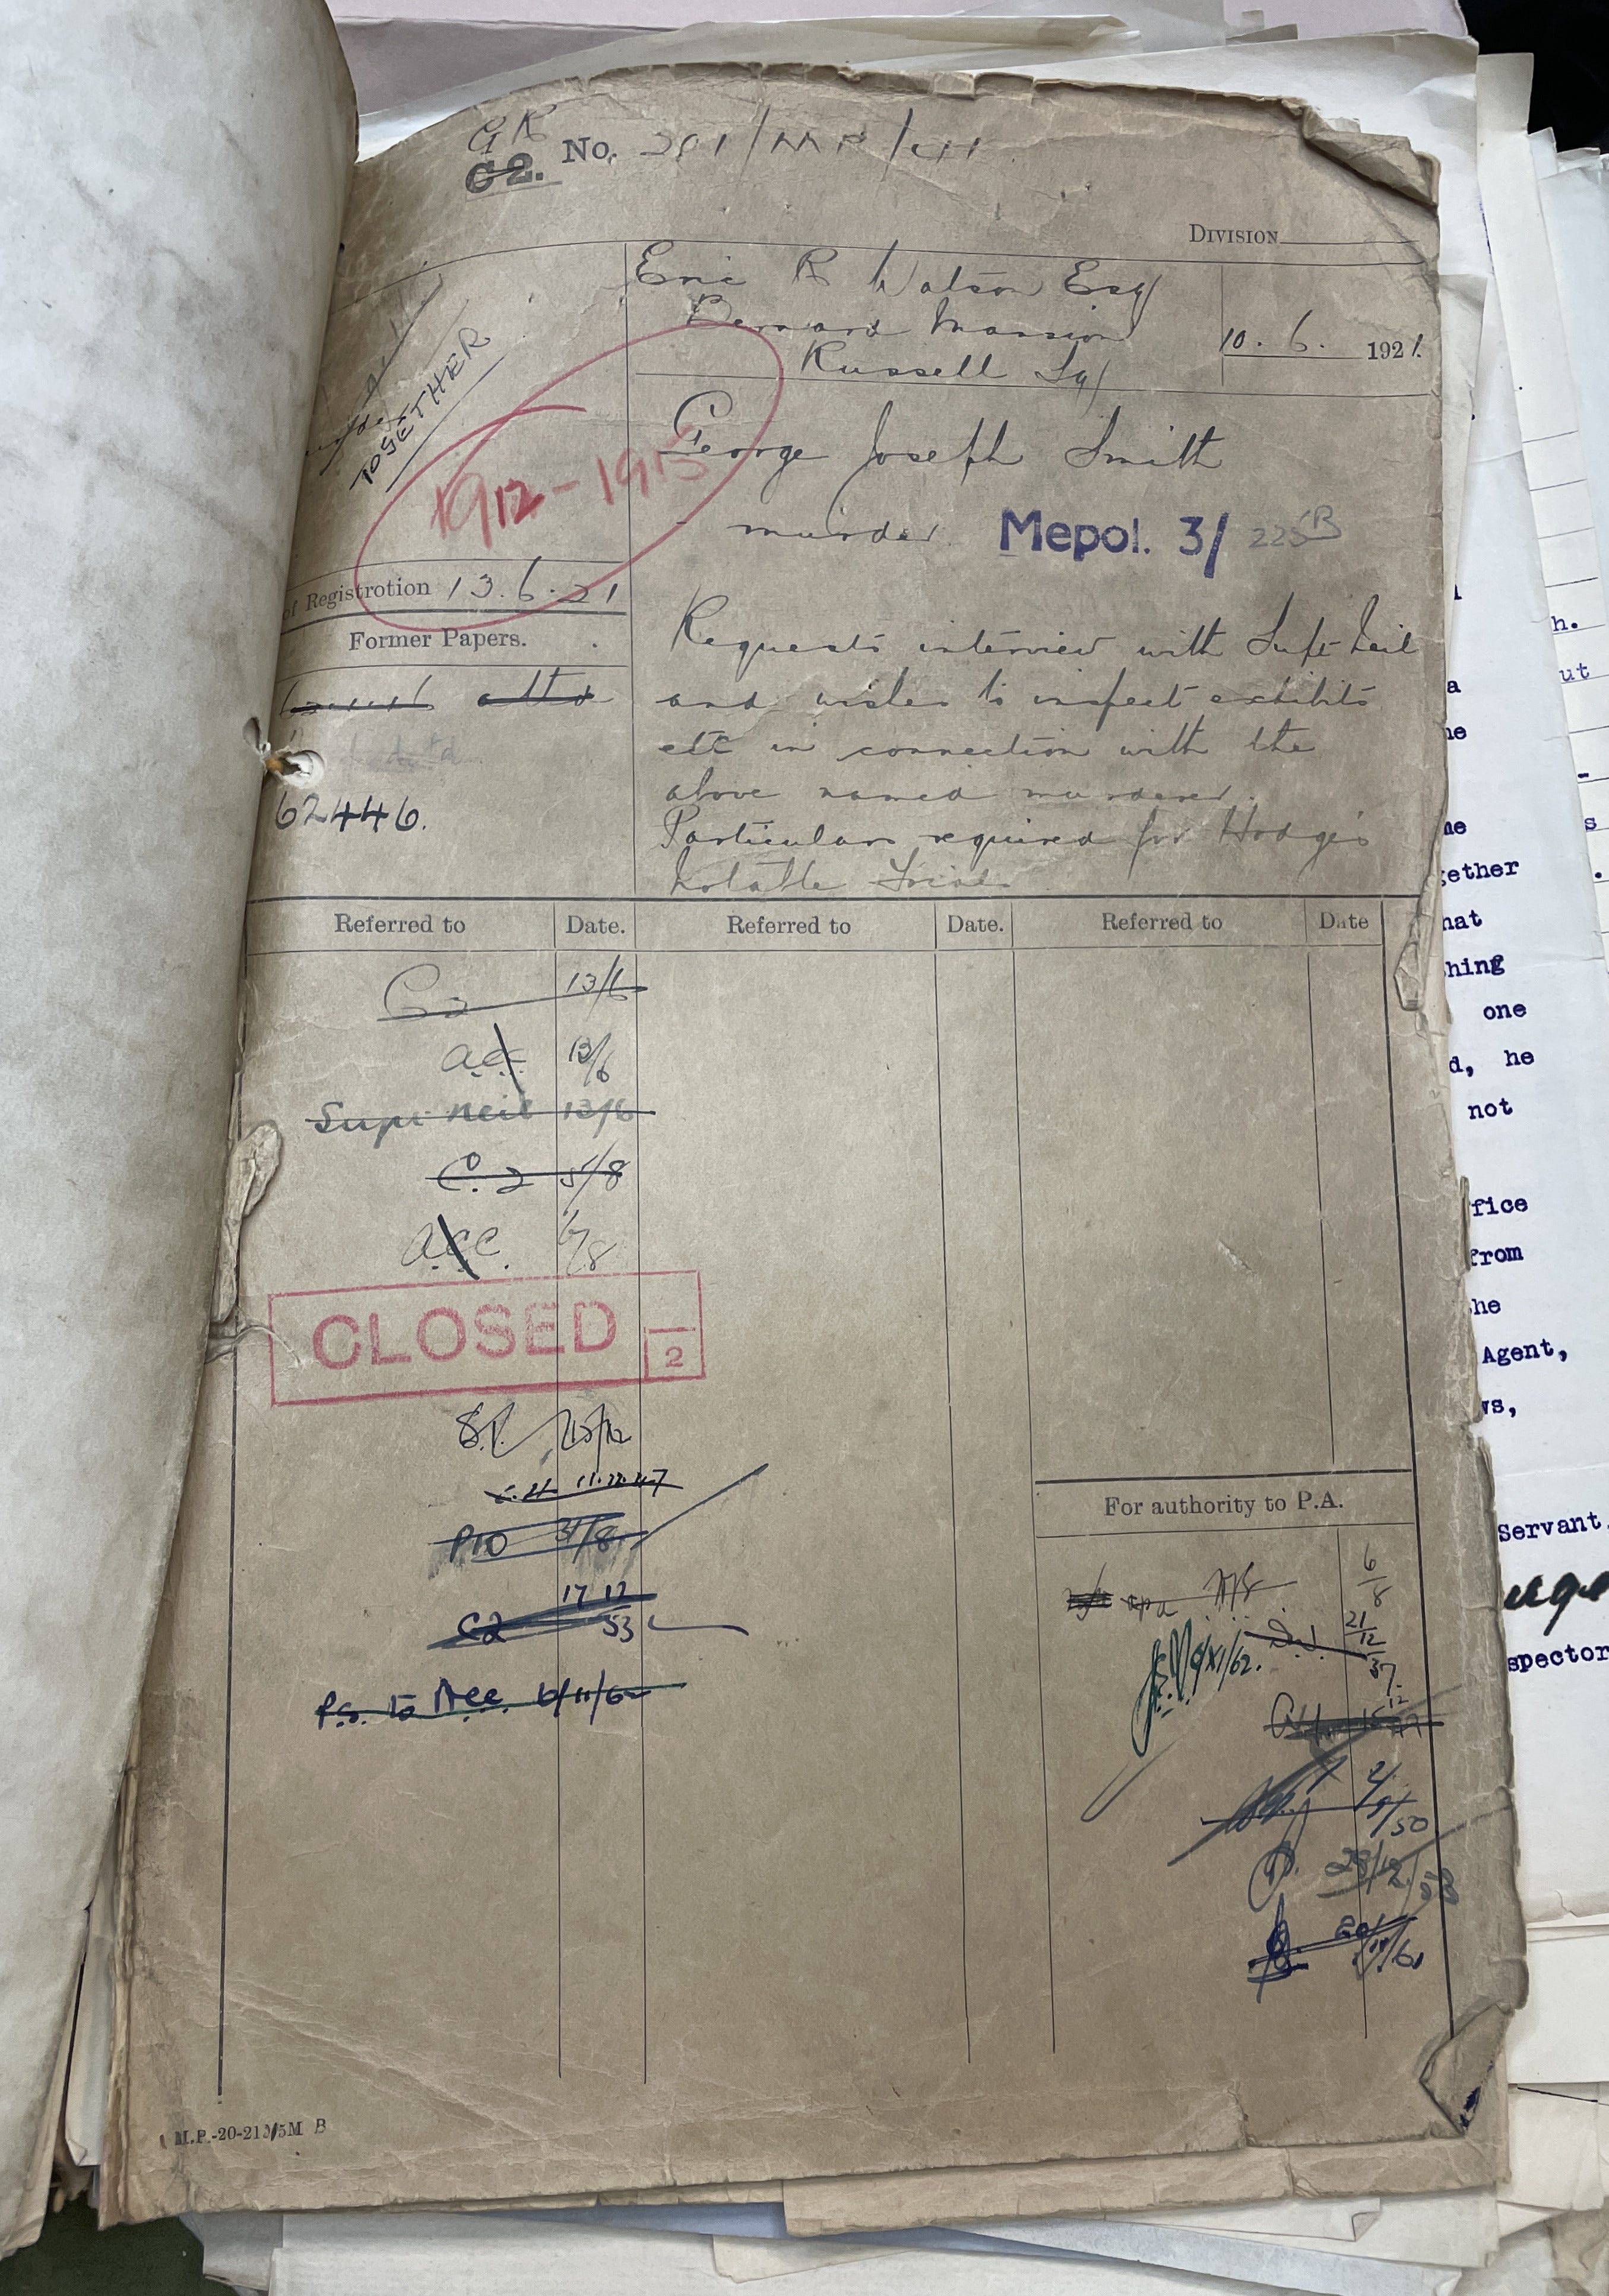 GR
C2. No. 201/MR/411
DIVISION
Eric R Watson Esq
Bernard Mansion
Russell Sq
10. 6. 1921.
TOGETHER
1912-1915
George Joseph Smith
- murder.
Mepol. 3/ 225B
of Registration 13.6.21
Former Papers.
attd
62446.
Requests interview with Supt Neil
and wishes to inspect exhibits
etc in connection with the
above named murderer.
Particulars required for Hodge's
Notable Trials
Referred to Date. Referred to Date. Referred to Date
C2 13/6
a.c.c. 13/6
Supt Neil 13/6
C.2 5/8
a.c.c. 6/8
CLOSED 2
P10 31/8
C2 17 12 53
P.S. to Acc 6/11/62
For authority to P.A.
6/8
21/12/37
9/XI/62.
2/9/50
28/12/53
M.P.-20-21
gether
hat
hing
one
d, he
not
fice
from
he
Agent,
ws,
Servant,
spector